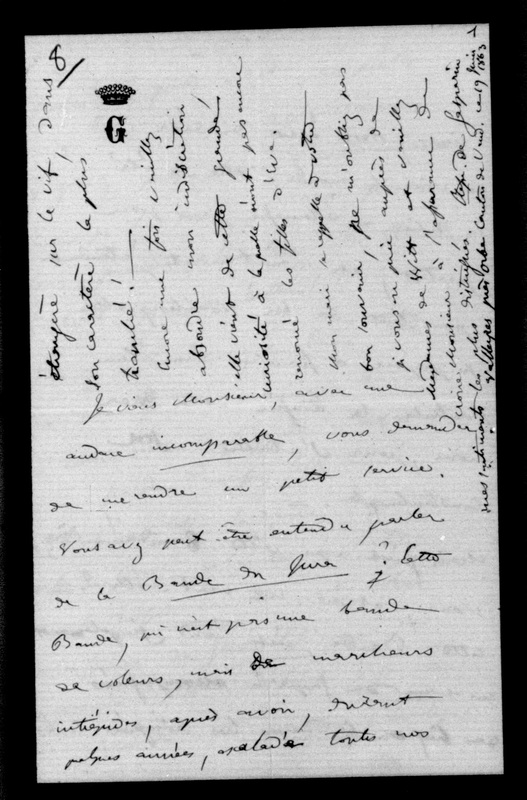 8
Je viens Monsieur, avec une
audace incomparable, vous demander
de me rendre un petit service.
Vous avez peut être entendu parler
de la Bande du Jura ? Cette
Bande, qui n'est pas une bande
de voleurs, mais de marcheurs
intrépides, après avoir, durant
quelques années, escaladé toutes nos
étrangère sur le vif dans
son caractère le plus
tranché! —
Encore une fois veuillez
absoudre mon indiscrétion
elle vient de cette grande
curiosité à laquelle n'ont pas encore
renoncé les filles d'Eve.
Mon mari se rappelle à votre
bon souvenir! Ne m'oubliez pas
je vous en prie auprès de
Mesdames de Witt et veuillez
croire Monsieur à l'assurance de
mes sentiments les plus distingués.
Ctsse de Gasparin
Valleyres près Orbe Canton de Vaud. ce 19 juin 1863